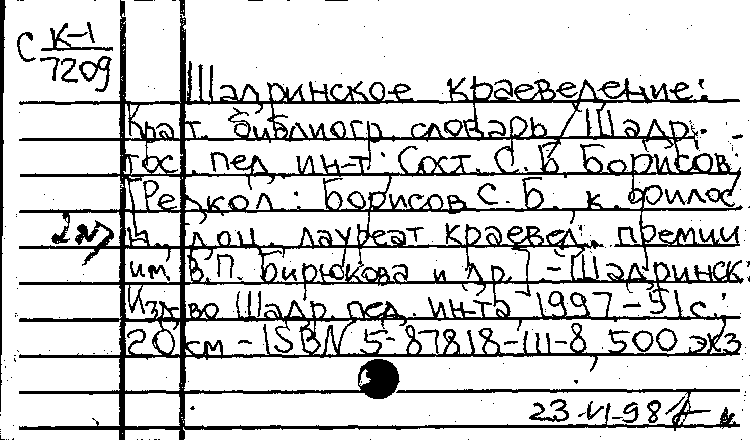 С К-1
7209
Шадринское краеведение:
Крат. библиогр. словарь / Шадр.
гос. пед. ин-т; Сост. С.Б. Борисов;
[Редкол.: Борисов С.Б., к. филос.
н., доц., лауреат краевед. премии
им. В.П. Бирюкова и др.] - Шадринск:
Изд-во Шадр. пед. ин-та, 1997 - 91 с.;
20 см - ISBN 5-87818-111-8, 500 экз
23-VI-98